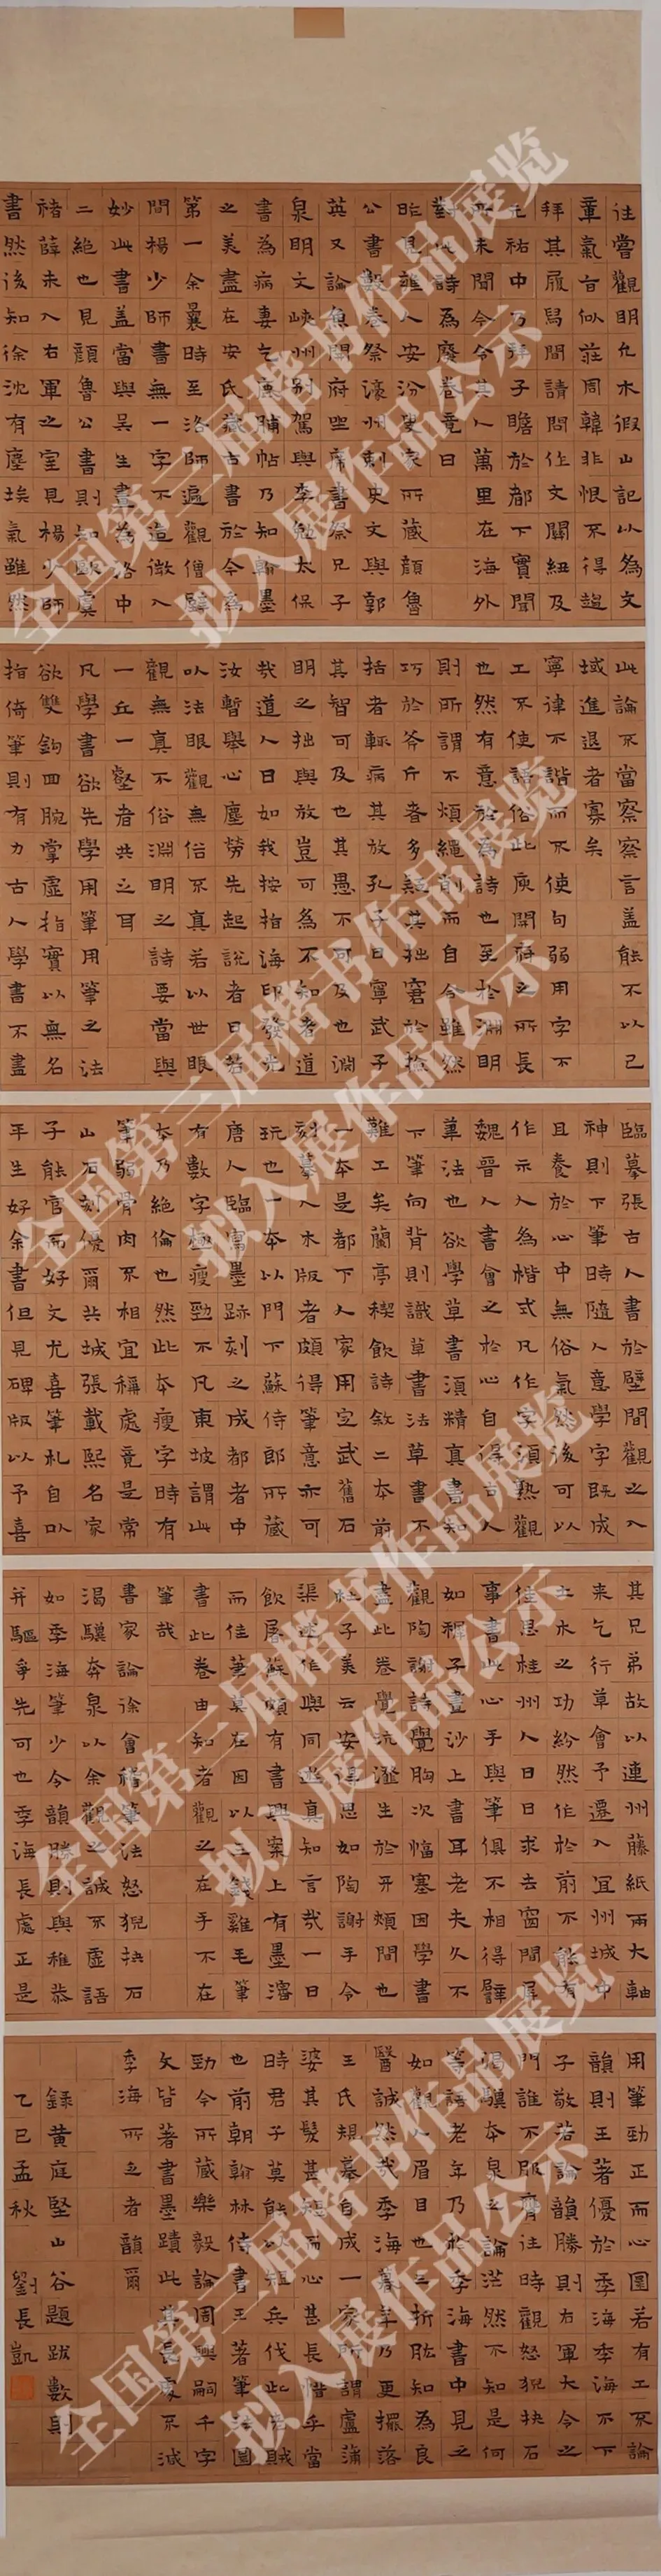 往嘗觀明允木假山記以為文
章氣旨似莊周韓非恨不得趨
拜其履舄間請問作文關紐及
元祐中乃拜子瞻於都下實聞
所未聞今令其人萬里在海外
對此詩為廢卷竟日
昨見雄人安汾叟家所藏顏魯
公書數卷祭濠州刺史文與郭
英又論魚開府坐席書祭兄子
泉明文峽州別駕與李勉太保
書為病妻乞鹿脯帖乃知翰墨
之美盡在安氏藏古書於今為
第一余曩時至洛師遍觀僧壁
間楊少師書無一字不造微入
妙此書蓋當與吳生畫為洛中
二絕也見顏魯公書則知歐虞
褚薛未入右軍之室見楊少師
書然後知徐沈有塵埃氣雖然
此論不當察察言蓋能不以己
域進退者寡矣
寧律不諧而不使句弱用字不
工不使語俗此庾開府之所長
也然有意於為詩也至於淵明
則所謂不煩繩削而自合雖然
巧於斧斤者多疑其拙窘於檢
括者輒病其放孔子曰寧武子
其智可及也其愚不可及也淵
明之拙與放豈可為不知者道
哉道人曰如我按指海印發光
汝暫舉心塵勞先起說者曰若
以法眼觀無俗不真若以世眼
觀無真不俗淵明之詩要當與
一丘一壑者共之耳
凡學書欲先學用筆用筆之法
欲雙鉤回腕掌虛指實以無名
指倚筆則有力古人學書不盡
臨摹張古人書於壁間觀之入
神則下筆時隨人意學字既成
且養於心中無俗氣然後可以
作示人為楷式凡作字須熟觀
魏晉人書會之於心自得古人
筆法也欲學草書須精真書知
下筆向背則識草書法草書不
難工矣蘭亭禊飲詩敘二本前
一本是都下人家用定武舊石
刻摹入木版者頗得筆意亦可
玩也一本以門下蘇侍郎所藏
唐人臨寫墨跡刻之成都者中
有數字極瘦勁不凡東坡謂此
本乃絕倫也然此本瘦字時有
筆弱骨肉不相宜稱處竟是常
山石刻優爾共城張載熙名家
子能官而好文尤喜筆札自以
平生好余書但見碑版以予喜
其兄弟故以連州藤紙兩大軸
來乞行草會予遷入宜州城中
土木之功紛然作於前不能有
佳思桂州人日日求去窗間屏
事書此心手與筆俱不相得譬
如禪子畫沙上書耳老夫久不
觀陶謝詩覺胸次愊塞因學書
盡此卷覺沆瀣生於牙頰間也
杜子美云安得思如陶謝手令
渠述作與同遊真知言哉一日
飲屠蘇頗有書興案上有墨瀋
而佳筆莫在因以三錢雞毛筆
書此卷由知者觀之在手不在
筆哉
書家論徐會稽筆法怒猊抉石
渴驥奔泉以余觀之誠不虛語
如季海筆少令韻勝則與稚恭
并驅爭先可也季海長處正是
用筆勁正而心圓若有工不論
韻則王著優於季海季海不下
子敬若論韻勝則右軍大令之
門誰不服膺往時觀怒猊抉石
渴驥奔泉之論茫然不知是何
等語老年乃於季海書中見之
如觀人眉目也三折肱知為良
醫誠然哉季海暮年乃更擺落
王氏規摹自成一家所謂盧蒲
嫳其髮甚短而心甚長惜乎當
時君子莫能以短兵伐此老賊
也前朝翰林侍書王著筆法圓
勁今所藏樂毅論周興嗣千字
文皆著書墨蹟此其長處不減
季海所乏者韻爾
錄黃庭堅山谷題跋數則
乙巳孟秋 劉長凱
全国第三届楷书作品展览
拟入展作品公示
全国第三届楷书作品展览
拟入展作品公示
全国第三届楷书作品展览
拟入展作品公示
全国第三届楷书作品展览
拟入展作品公示